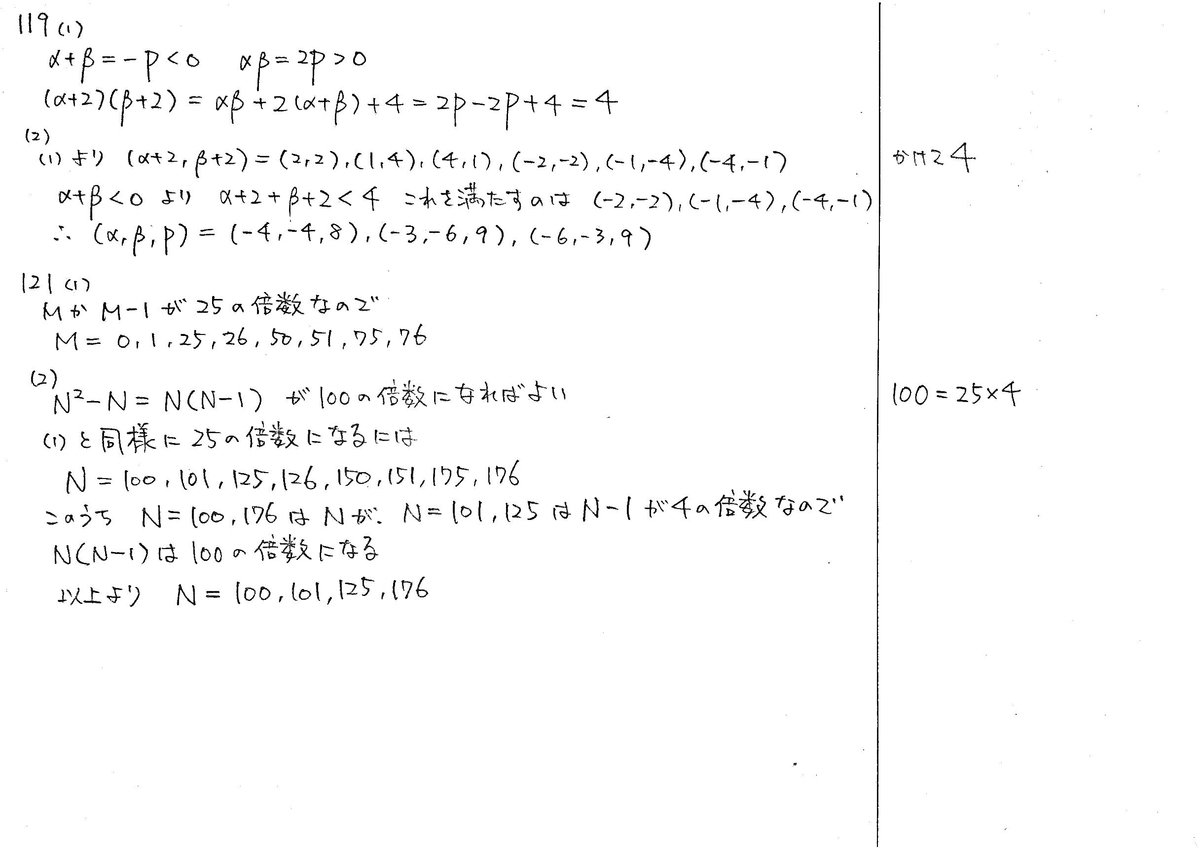 119 (1)
α+β=-p<0 αβ=2p>0
(α+2)(β+2)=αβ+2(α+β)+4=2p-2p+4=4
(2)
(1)より (α+2,β+2)=(2,2),(1,4),(4,1),(-2,-2),(-1,-4),(-4,-1)
かけて4
α+β<0 より α+2+β+2<4 これを満たすのは (-2,-2),(-1,-4),(-4,-1)
∴ (α,β,p)=(-4,-4,8),(-3,-6,9),(-6,-3,9)
121 (1)
MかM-1が25の倍数なので
M=0,1,25,26,50,51,75,76
(2)
N²-N=N(N-1) が100の倍数になればよい
100=25×4
(1)と同様に25の倍数になるには
N=100,101,125,126,150,151,175,176
このうち N=100,176はNが、N=101,125はN-1が4の倍数なので
N(N-1)は100の倍数になる
以上より N=100,101,125,176